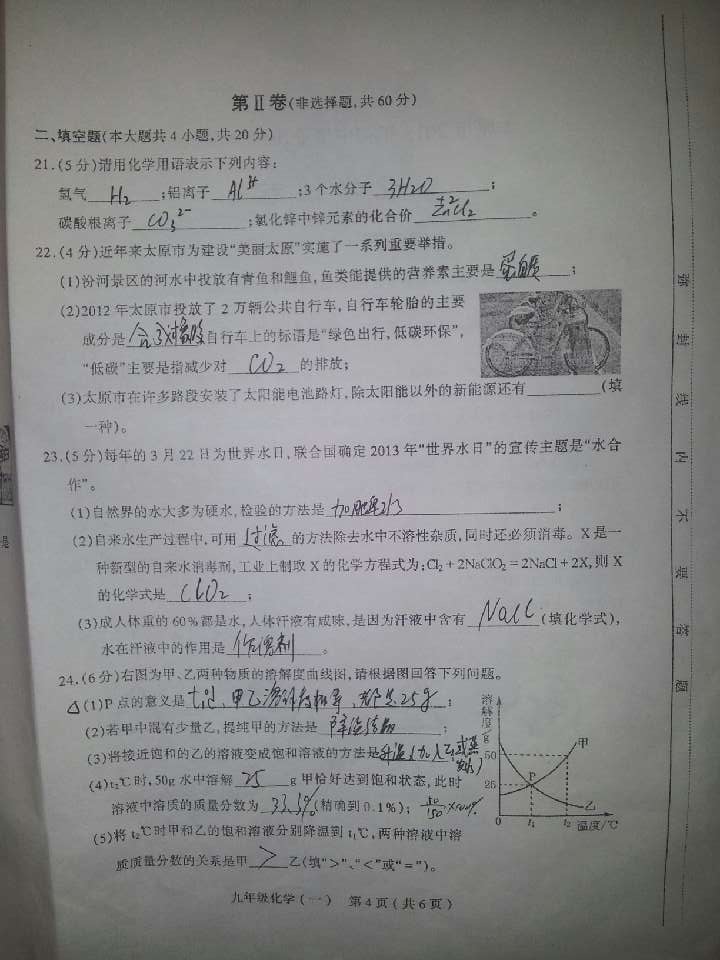 第Ⅱ卷(非选择题,共60分)
二、填空题(本大题共4小题,共20分)
21.(5分)请用化学用语表示下列内容:
氢气 H₂ ;铝离子 Al³⁺ ;3个水分子 3H₂O ;
碳酸根离子 CO₃²⁻ ;氯化锌中锌元素的化合价 ZnCl₂ +2 。
22.(4分)近年来太原市为建设“美丽太原”实施了一系列重要举措。
(1)汾河景区的河水中投放有青鱼和鲤鱼,鱼类能提供的营养素主要是 蛋白质 ;
(2)2012年太原市投放了2万辆公共自行车,自行车轮胎的主要
成分是 合 橡胶 自行车上的标语是“绿色出行,低碳环保”,
“低碳”主要是指减少对 CO₂ 的排放;
(3)太原市在许多路段安装了太阳能电池路灯,除太阳能以外的新能源还有 (填
一种)。
23.(5分)每年的3月22日为世界水日,联合国确定2013年“世界水日”的宣传主题是“水合
作”。
(1)自然界的水大多为硬水,检验的方法是 加肥皂水 ;
(2)自来水生产过程中,可用 过滤 的方法除去水中不溶性杂质,同时还必须消毒。X是一
种新型的自来水消毒剂,工业上制取X的化学方程式为:Cl₂+2NaClO₂=2NaCl+2X,则X
的化学式是 ClO₂ ;
(3)成人体重的60%都是水,人体汗液有咸味,是因为汗液中含有 NaCl (填化学式),
水在汗液中的作用是 作溶剂 。
24.(6分)右图为甲、乙两种物质的溶解度曲线图,请根据图回答下列问题。
△(1)P点的意义是 t₁℃、甲乙溶解度相等,都是25g ;
(2)若甲中混有少量乙,提纯甲的方法是 降温结晶 ;
(3)将接近饱和的乙的溶液变成饱和溶液的方法是 升温(加入乙或蒸发水)
(4)t₂℃时,50g水中溶解 25 g甲恰好达到饱和状态,此时
溶液中溶质的质量分数为 33.3% (精确到0.1%); 50/150×100%
(5)将t₂℃时甲和乙的饱和溶液分别降温到t₁℃,两种溶液中溶
质质量分数的关系是甲 > 乙(填“>”、“<”或“=”)。
溶解度/g
50
25
0
t₁
t₂
温度/℃
甲
乙
P
九年级化学(一) 第4页(共6页)
弥封线内不要答题